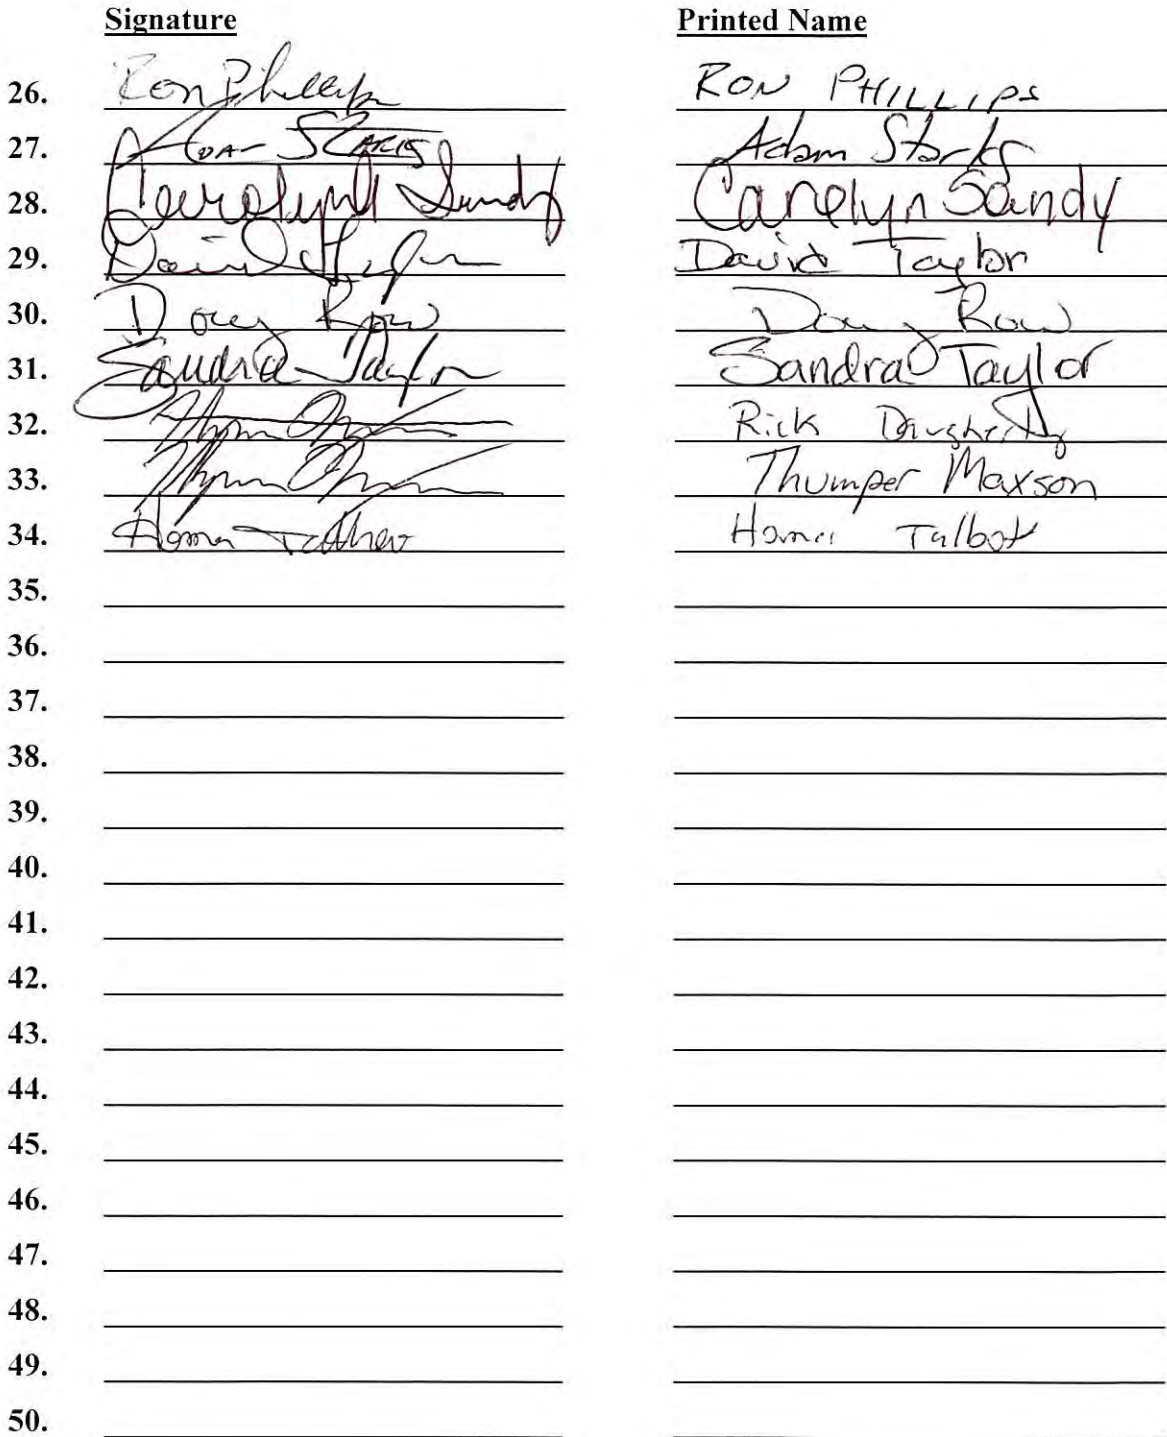 Signature Printed Name
26. Ron Phillips RON PHILLIPS
27. Adam Starks Adam Starks
28. Carolynn Sandy Carolyn Sandy
29. David Taylor David Taylor
30. Doug Row Doug Row
31. Sandra Taylor Sandra Taylor
32. Rick Daugherty
33. Thumper Maxson
34. Homer Talbot
35.
36.
37.
38.
39.
40.
41.
42.
43.
44.
45.
46.
47.
48.
49.
50.